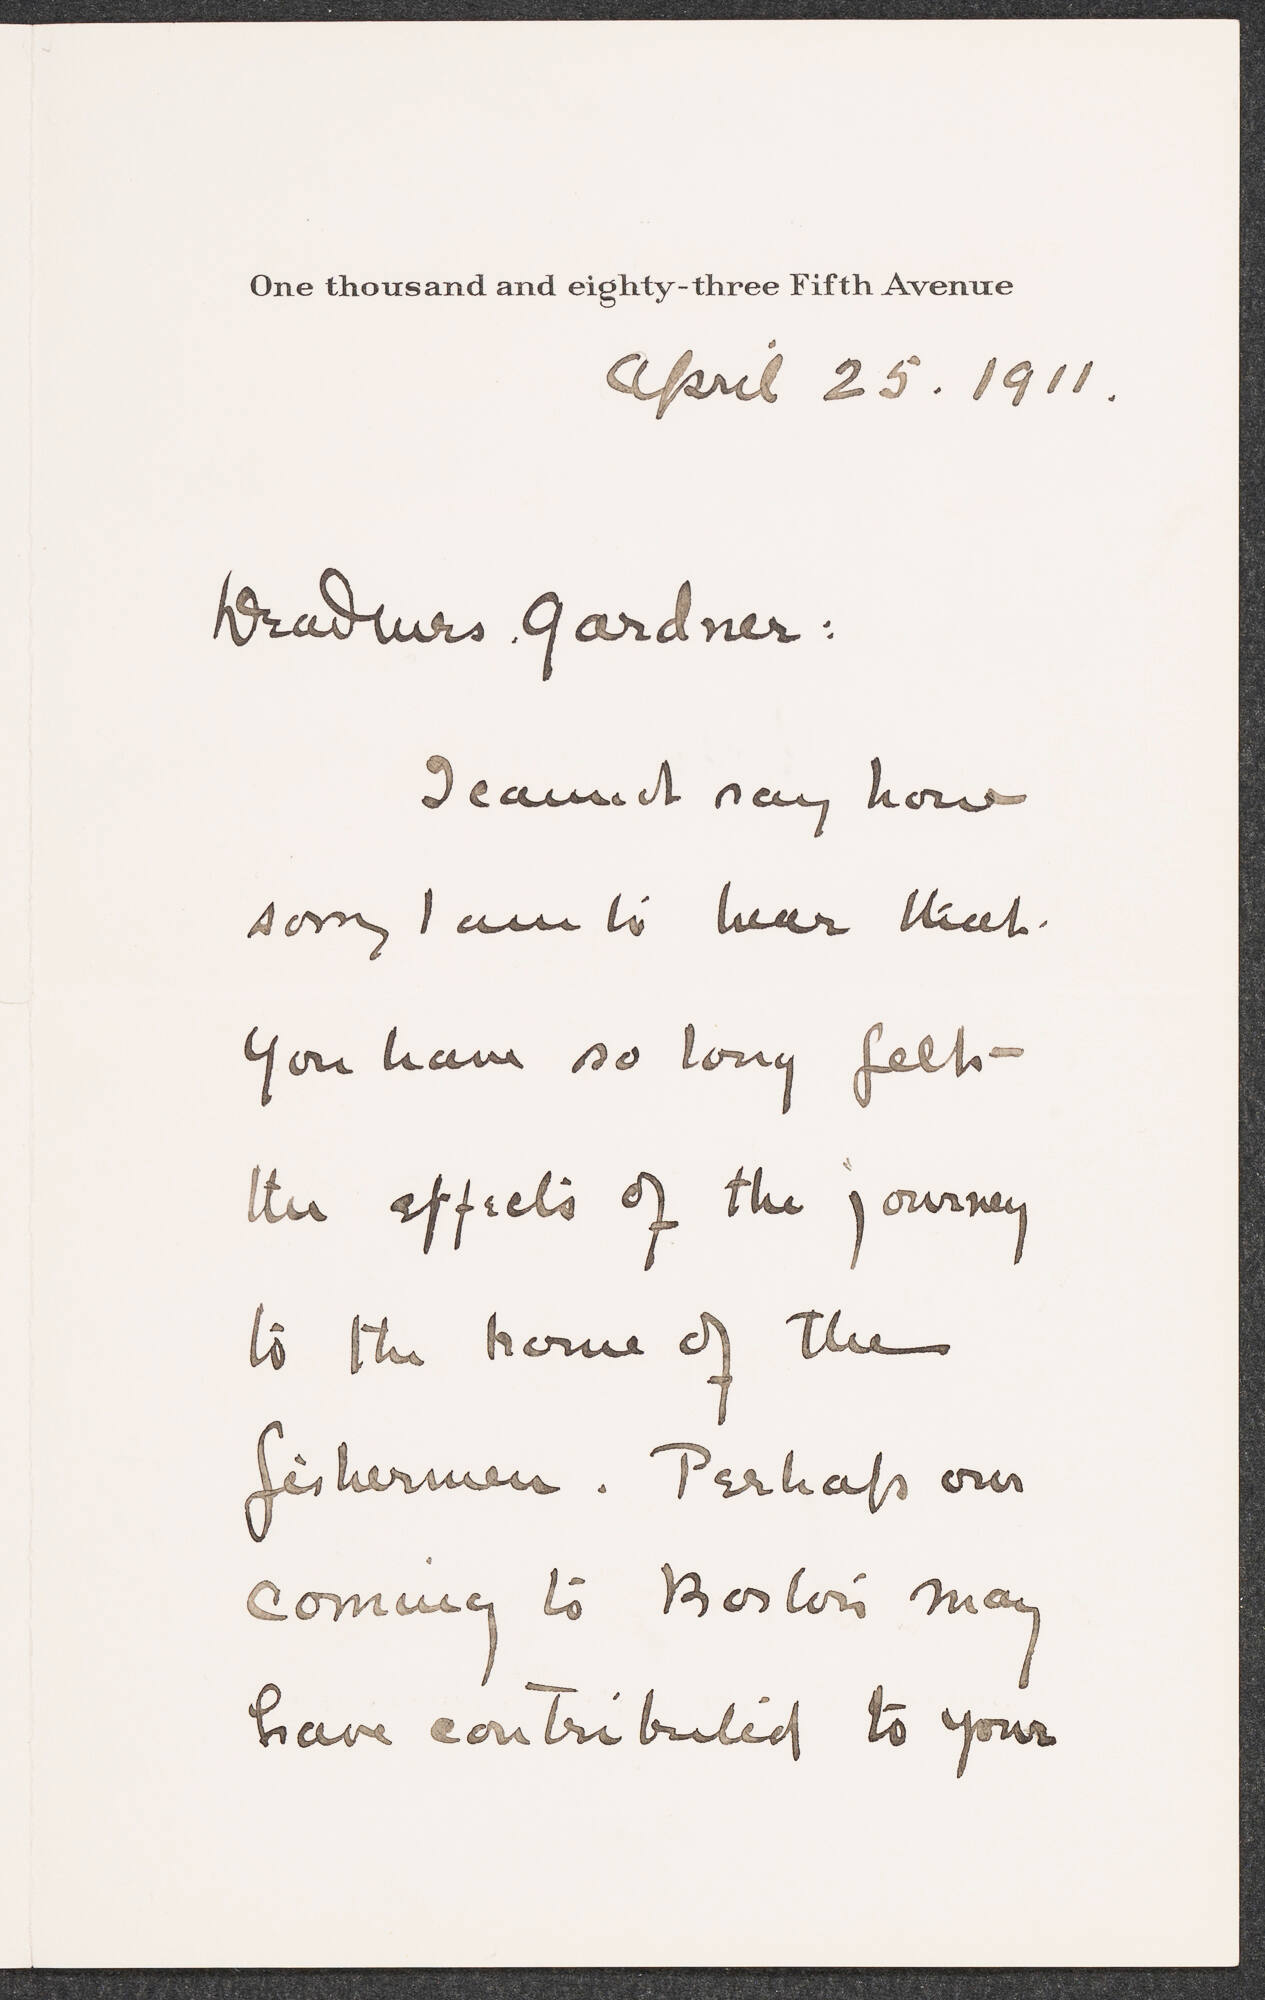 One thousand and eighty-three Fifth Avenue
April 25. 1911.
Dear Mrs. Gardner:
I cannot say how
sorry I am to hear that
you have so long felt
the effects of the journey
to the home of the
fishermen. Perhaps our
coming to Boston may
have contributed to your